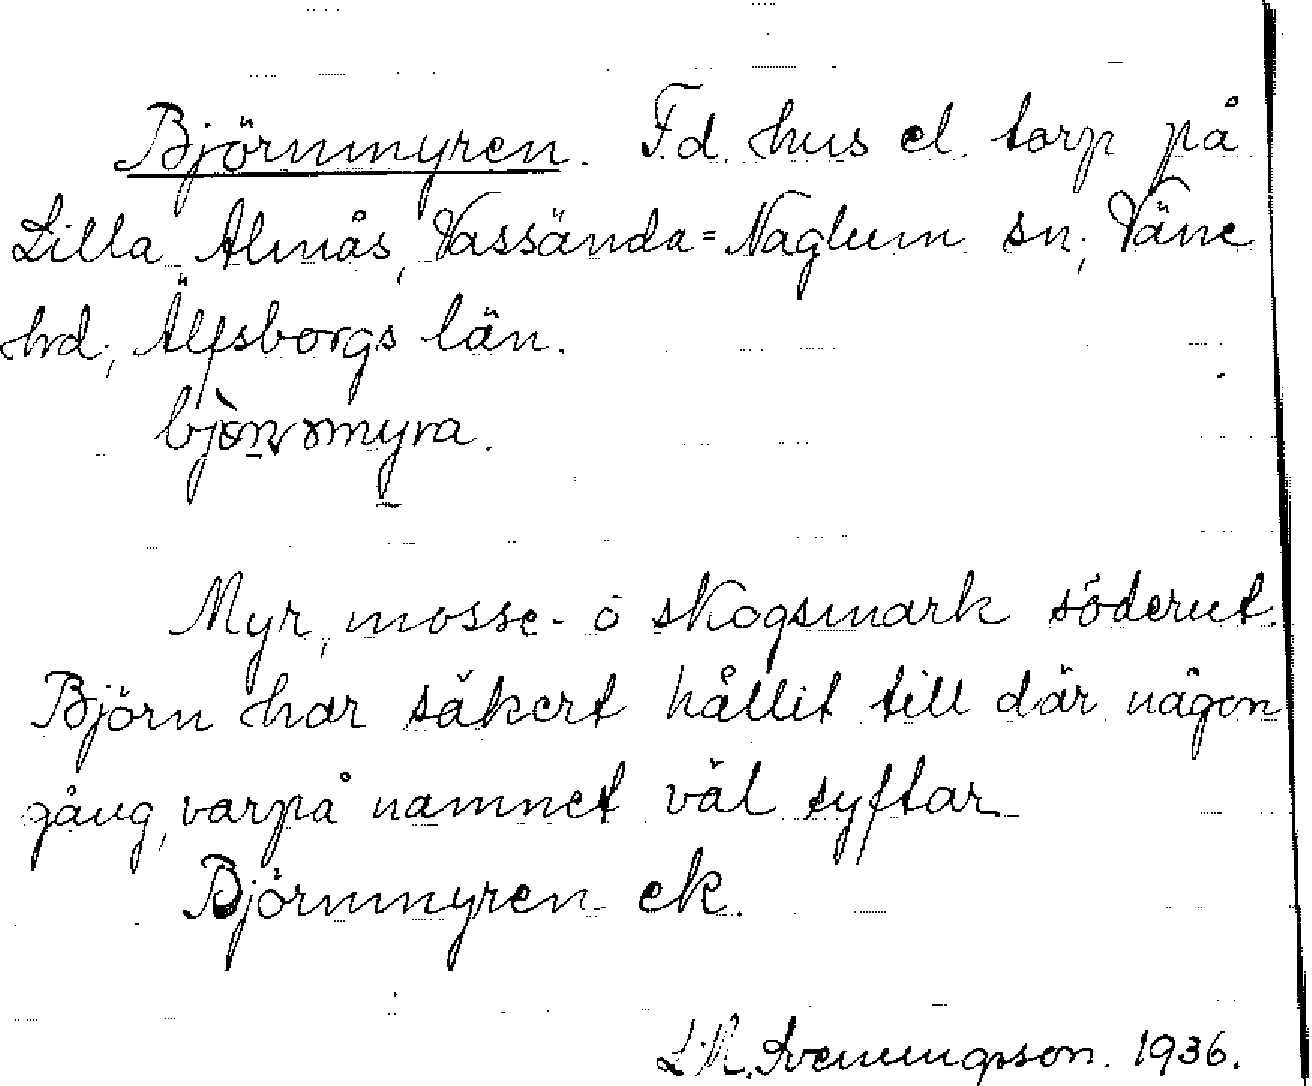 Björnmyren. F.d. hus el. torp på
Lilla Almås, Vassända=Naglum sn; Väne
hd; Älfsborgs län.
myra.
Myr, mosse- o skogsmark söderut.
Björn har säkert hållit till där någon
gång, varpå namnet väl syftar
Björnmyren ek.
L.R. Svenningsson. 1936.